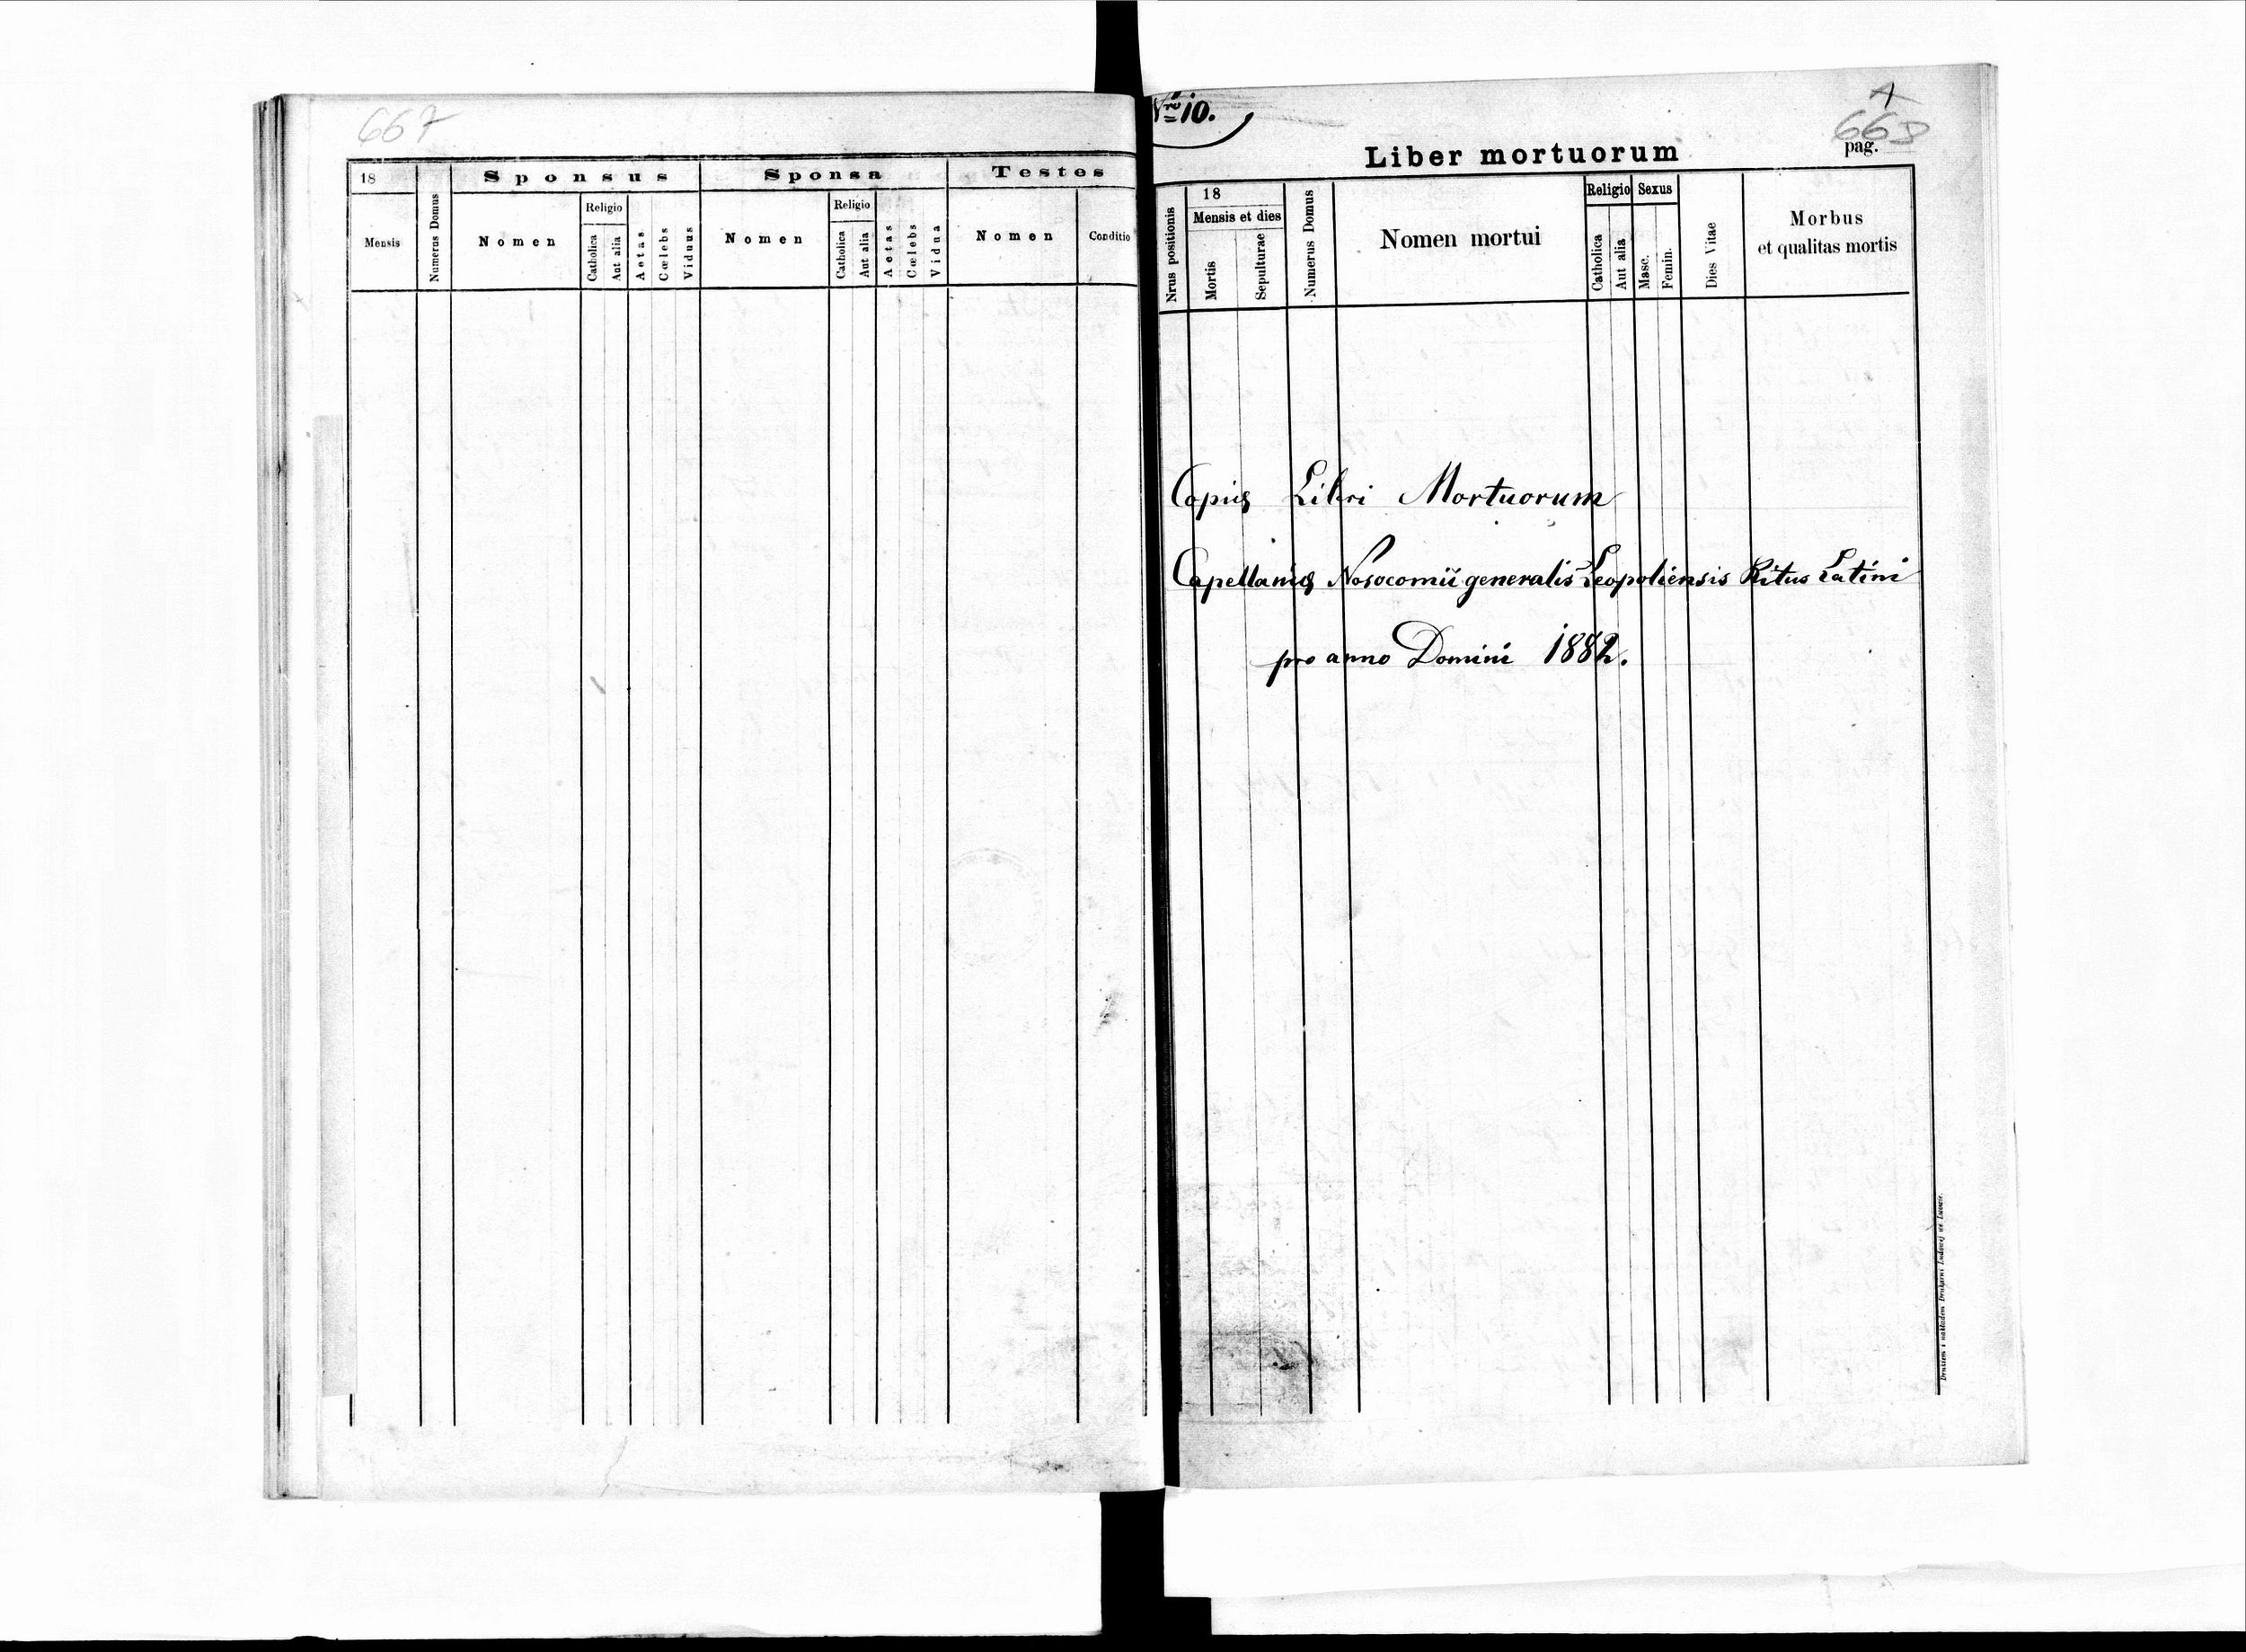 667
18
Sponsus
Sponsa
Testes
Mensis
Numerus Domus
Nomen
Religio
Catholica
Aut alia
Aetas
Cœlebs
Viduus
Nomen
Religio
Catholica
Aut alia
Aetas
Cœlebs
Vidua
Nomen
Conditio
Nro 10.
668
Liber mortuorum
pag.
Nrus positionis
18
Mensis et dies
Mortis
Sepulturae
Numerus Domus
Nomen mortui
Religio
Catholica
Aut alia
Sexus
Masc.
Femin.
Dies Vitae
Morbus
et qualitas mortis
Libri Mortuorum
Nosocomii generalis Leopoliensis Ritus Latini
pro anno Domini 1882.
Drukiem i nakładem Drukarni Ludowej we Lwowie.